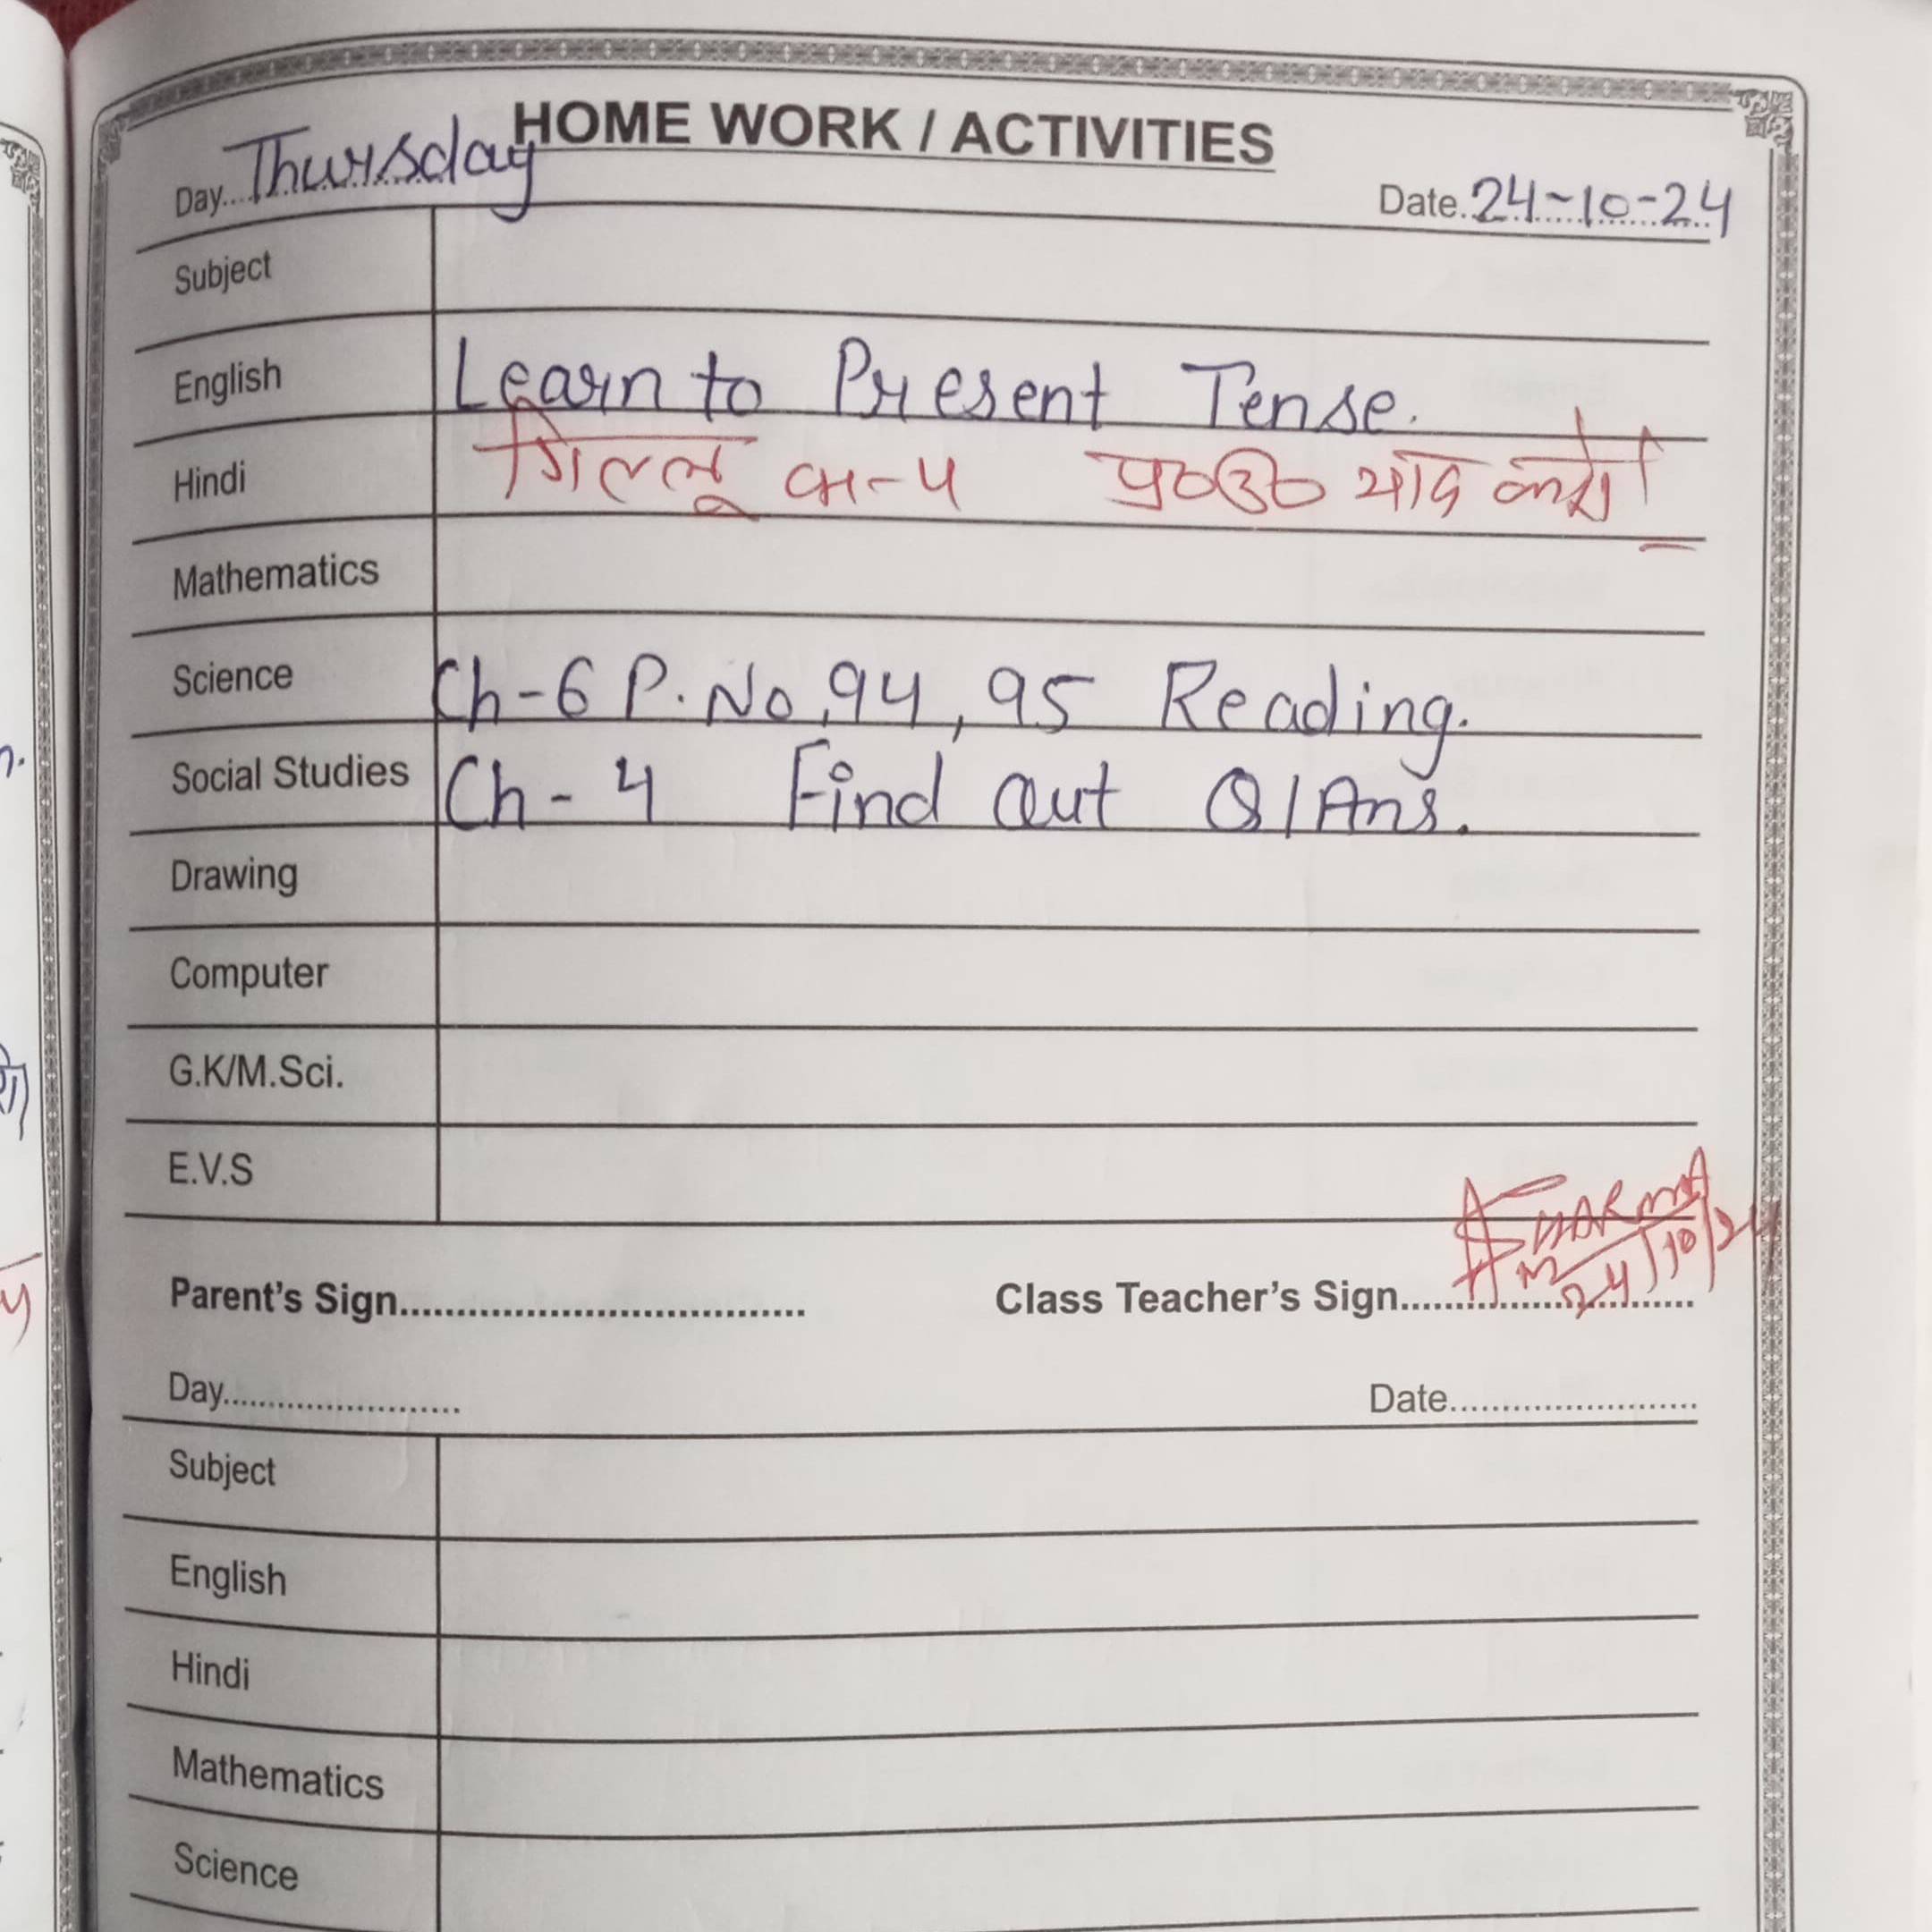 HOME WORK / ACTIVITIES
Day...Thursday Date.24-10-24
Subject
English Learn to Present Tense.
Hindi गिल्लू CH-4 प्र०उ० याद करो।
Mathematics
Science Ch-6 P.No,94,95 Reading.
Social Studies Ch-4 Find Out Q/Ans.
Drawing
Computer
G.K/M.Sci.
E.V.S
Parent's Sign.................................... Class Teacher's Sign.............................
24/10/24
Day........................ Date.........................
Subject
English
Hindi
Mathematics
Science